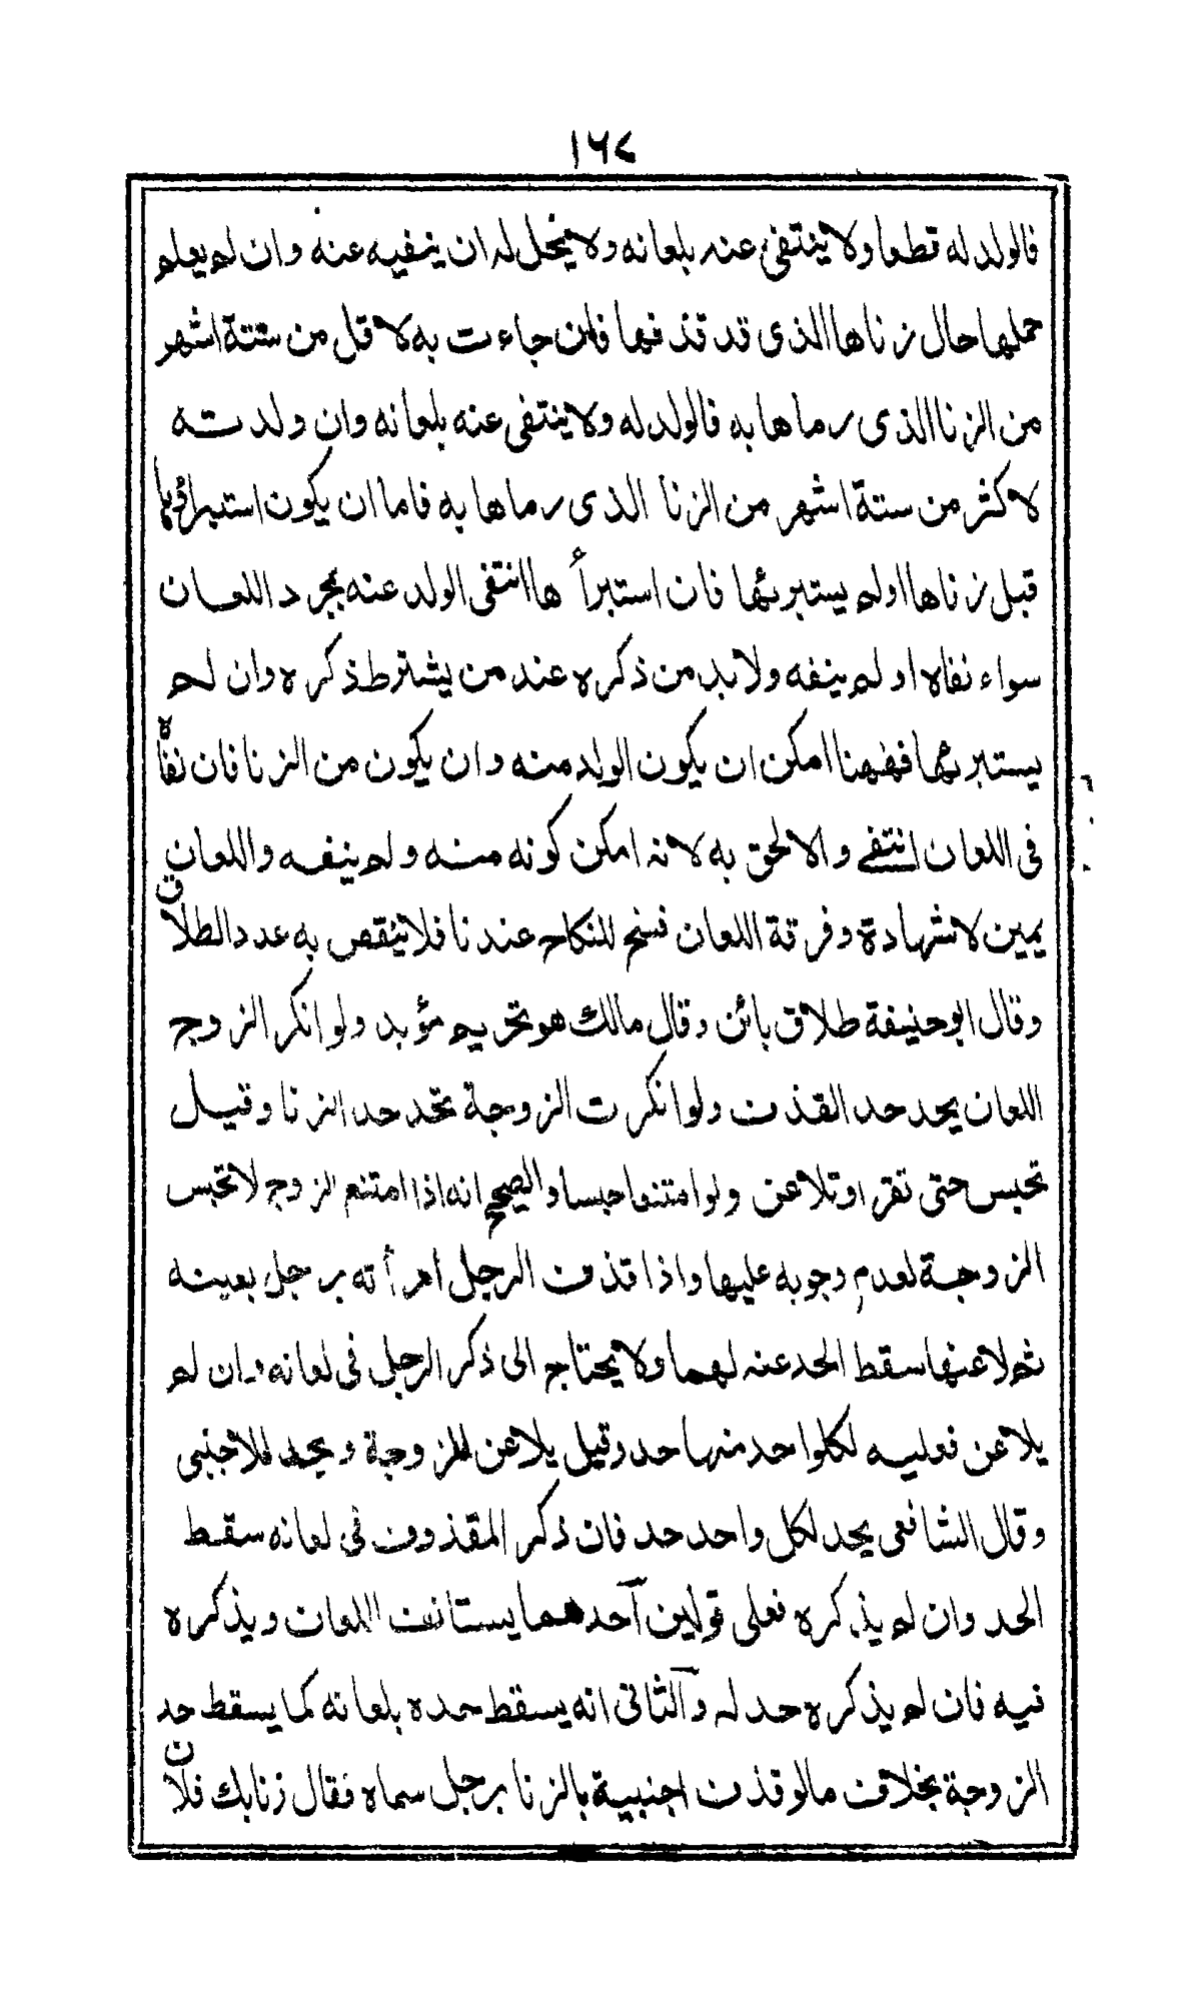 ١٦٨
فالولد له قطعا ولا ينتفى عنه بلعانه ولا يحل له ان ينفيه عنه وان لم يعلم
حملها حال زناها الذى قد قذفها فان جاءت به لاقل من ستة اشهر
من الزنا الذى رماها به فالولد له ولا ينتفى عنه بلعانه وان ولدته
لاكثر من ستة اشهر من الزنا الذى رماها به فاما ان يكون استبرائها
قبل زناها او لم يستبرئها فان استبرأها انتفى الولد عنه بمجرد اللعان
سواء نفاه او لم ينفه ولا بد من ذكره عند من يشترط ذكره وان لم
يستبرئها فههنا امكن ان يكون الولد منه وان يكون من الزنا فان نفاه
فى اللعان انتفے والا لحق به لانه امكن كونه منه ولم ينفه واللعان
يمين لا شهادة وفرقة اللعان فسخ للنكاح عندنا فلا ينقص به عدد الطلاق
وقال ابو حنيفة طلاق بائن وقال مالك هو تحريم مؤبد ولو انكر الزوج
اللعان يحد حد القذف ولو انكرت الزوجة تحد حد الزنا وقيل
تحبس حتى تقر او تلاعن ولو امتنعا حبسا والصحيح انه اذا امتنع الزوج لا تحبس
الزوجة لعدم وجوبه عليها واذا قذف الرجل امرأته برجل بعينه
ثم لاعنها سقط الحد عنه لهما ولا يحتاج الى ذكر الرجل فى لعانه وان لم
يلاعن فعليه لكلواحد منهما حد وقيل يلاعن للزوجة ويحد للاجنبى
وقال الشافعى يحد لكل واحد حد فان ذكر المقذوف فى لعانه سقط
الحد وان لم يذكره فعلى قولين آحدهما يستانف اللعان ويذكره
فيه فان لم يذكره حد له وآلثانى انه يسقط حده بلعانه كما يسقط حد
الزوجة بخلاف ما لو قذف اجنبية بالزنا برجل سماه فقال زنا بك فلان